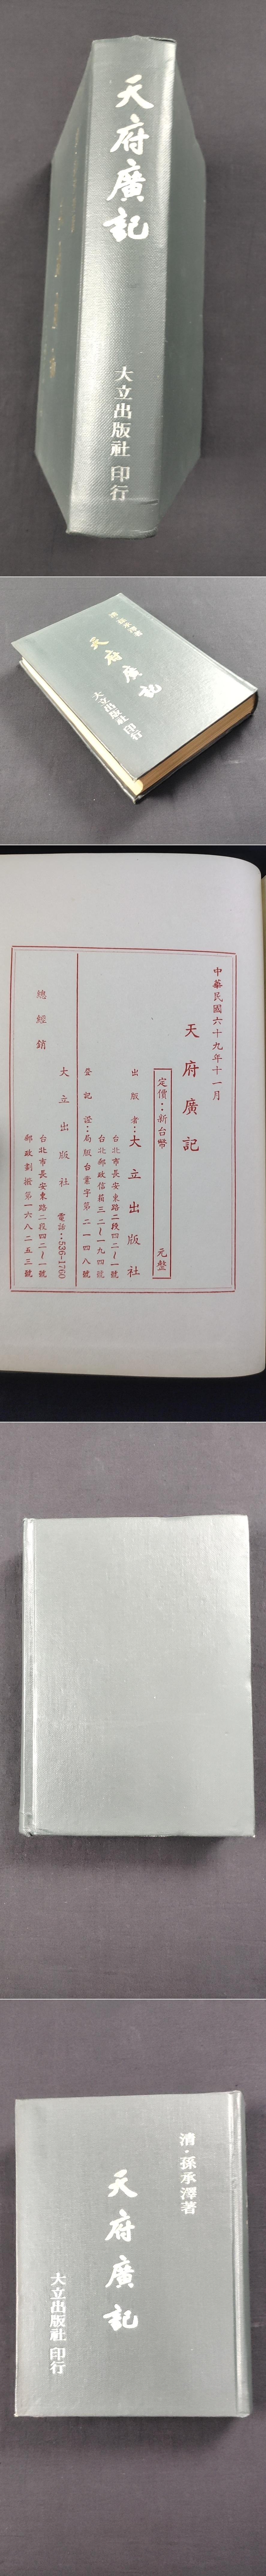 天府廣記
大立出版社 印行
清·孫承澤著
天府廣記
大立出版社 印行
中華民國六十九年十一月
天府廣記
定價：新台幣 元整
出版者：大立出版社
台北市長安東路二段四二～一號
台北郵政信箱三二～一九四號
登記證：局版台業字第二一四八號
大立出版社 電話：536-1760
總經銷
台北市長安東路二段四二～一號
郵政劃撥第一六八二五三號
清·孫承澤著
天府廣記
大立出版社 印行